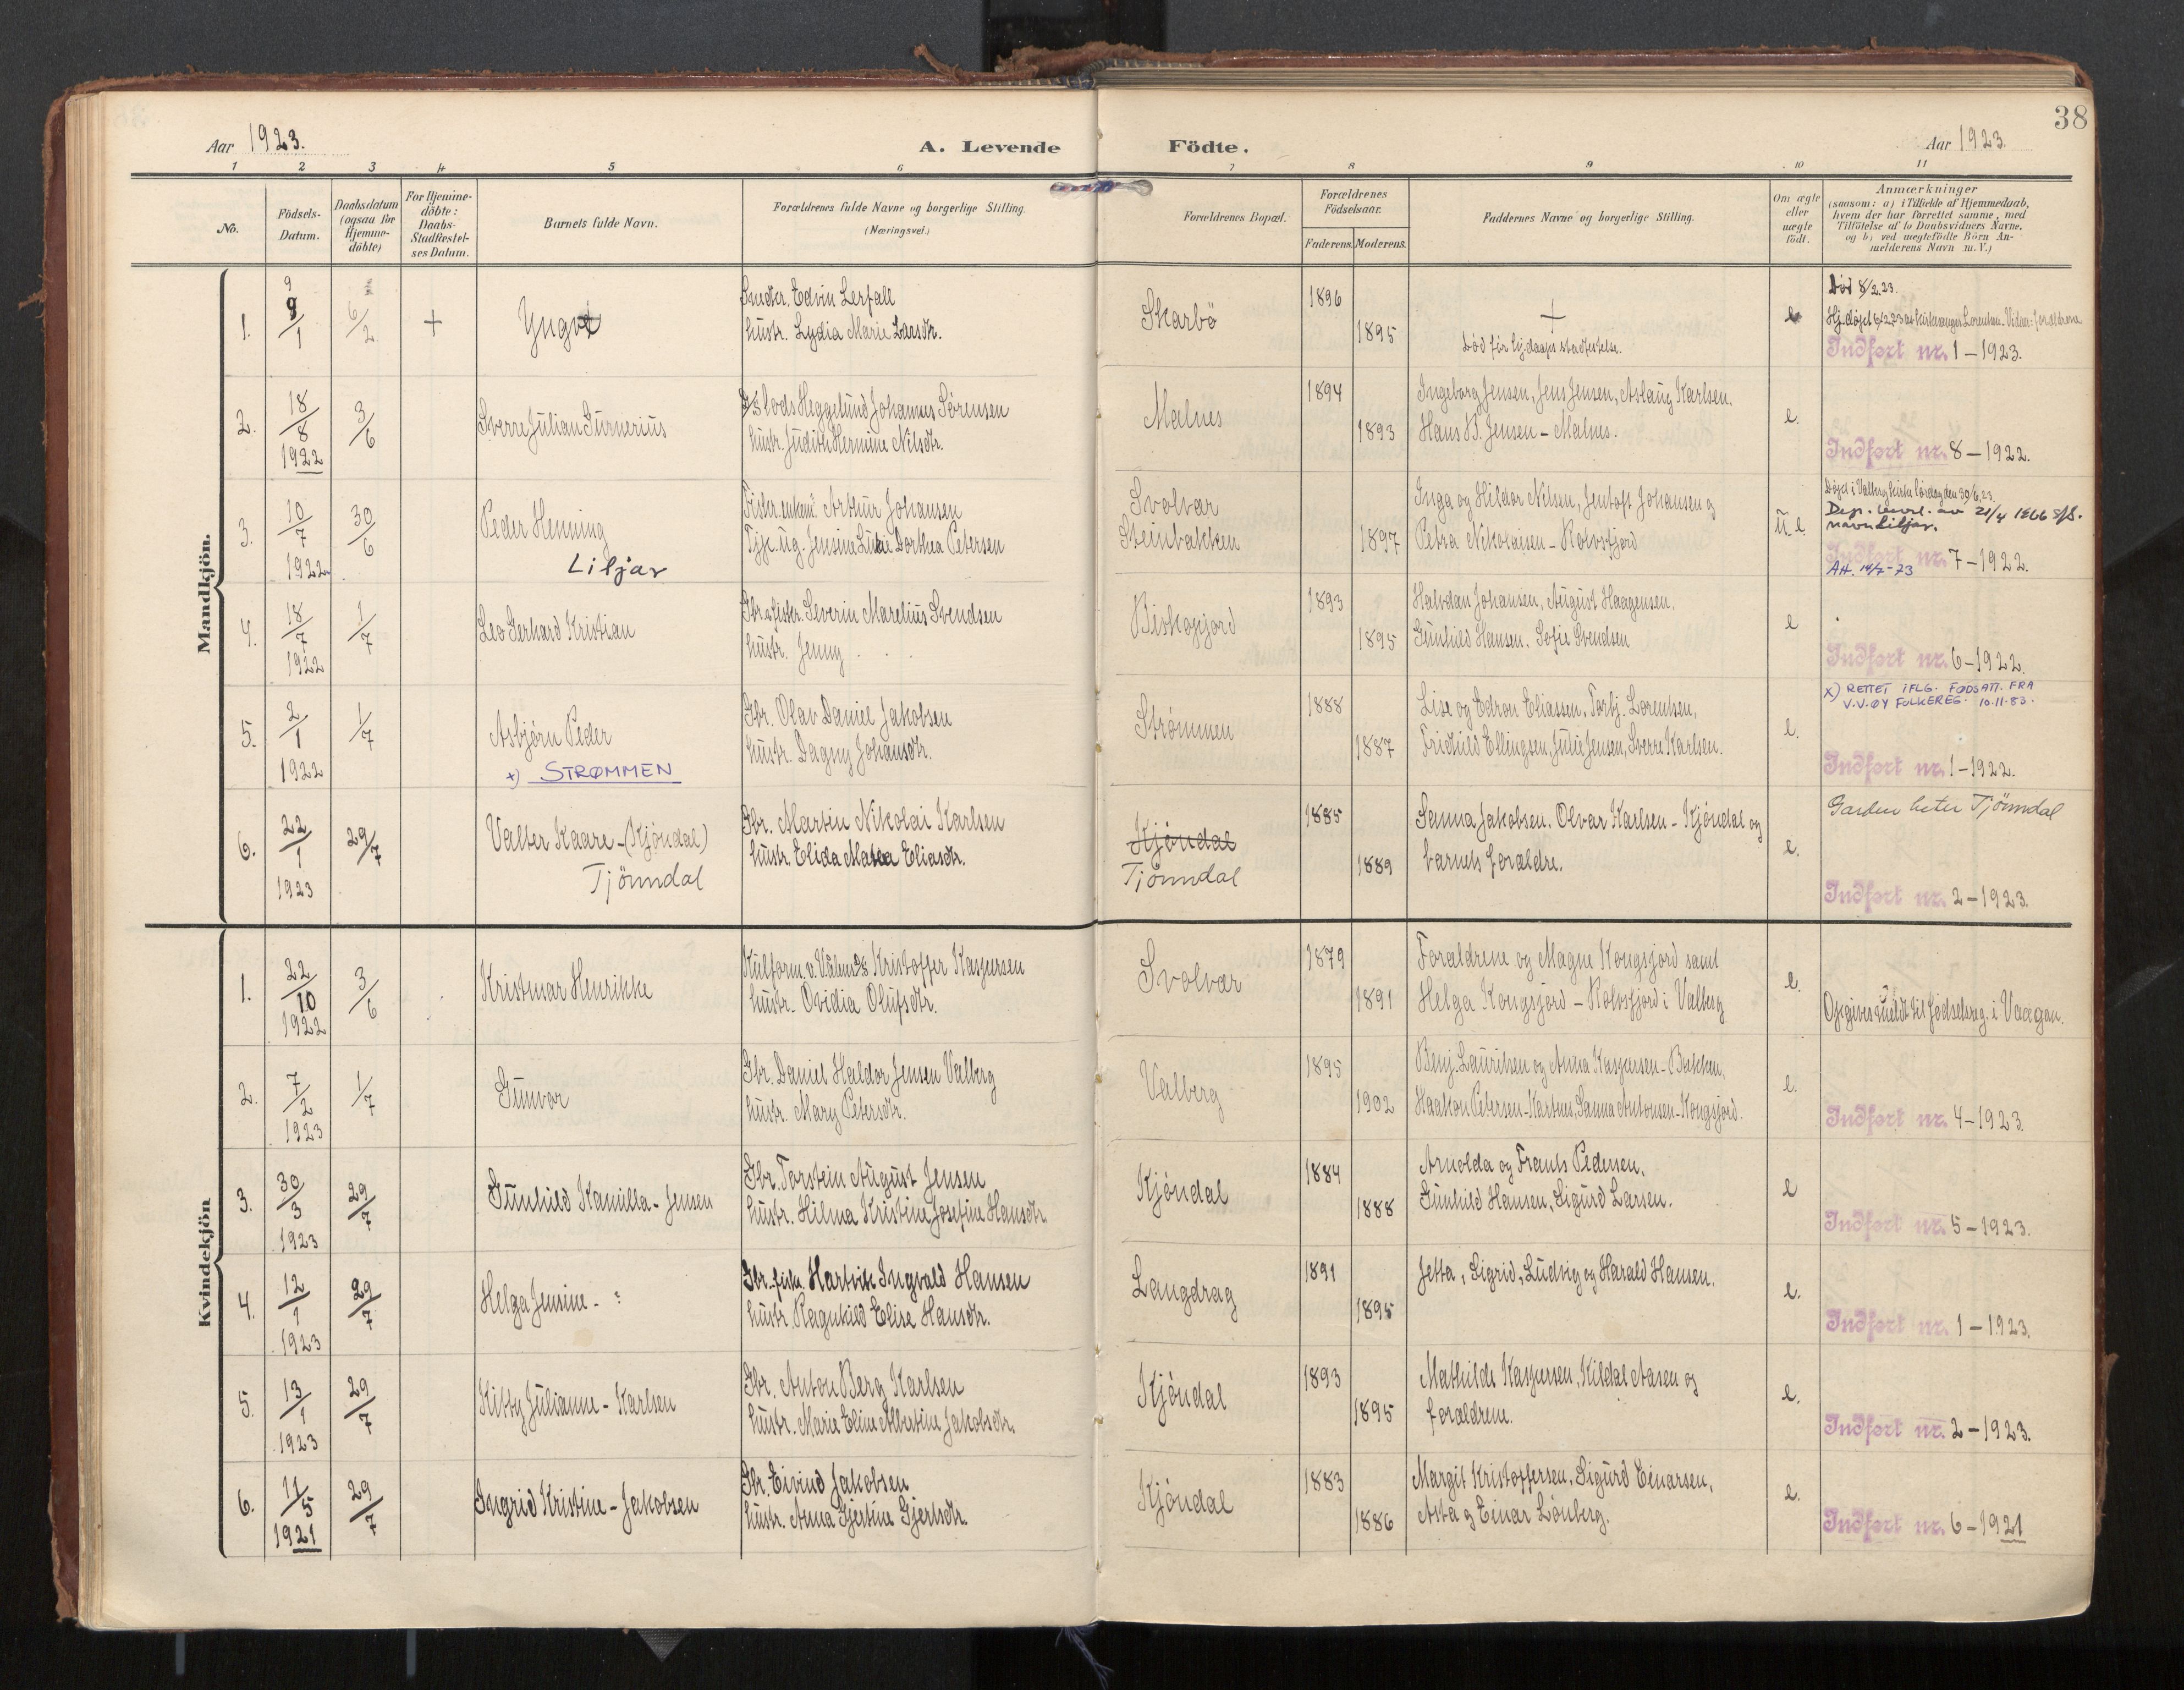 38
Aar 1923.
A. Levende Födte.
Aar 1923.
1 2 3 4 5 6 7 8 9 10 11
No.
Födsels-
Datum.
Daabsdatum
(ogsaa for
Hjemme-
döbte)
For Hjemme-
döbte:
Daabs-
Stadfæstel-
ses Datum.
Barnets fulde Navn.
Forældrenes fulde Navne og borgerlige Stilling.
(Næringsvei.)
Forældrenes Bopæl.
Forældrenes
Födselsaar.
Faderens. Moderens.
Faddernes Navne og borgerlige Stilling.
Om ægte
eller
uægte
födt.
Anmærkninger
(saasom: a) i Tilfælde af Hjemmedaab,
hvem der har forrettet samme, med
Tilföielse af to Daabsvidners Navne.
og b) ved uægtefödte Börn An-
melderens Navn m. V.)
Mandkjön.
1.
9
9/1
6/2
+
Yngve
Edvin Lerfall
hustr. Lydia Marie Larsdtr.
Skarbö
1896
1895
+
Död før hj.daaps stadfestelse.
e
Död 8/2.23.
Hj.døpt 6/2 23 av kirkesanger Lorentsen. Vidner: foraldrene
Indført nr. 1 – 1923.
2.
18/8
1922
3/6
Sverre Julian Gurnerius
Heggelund Johannes Sørensen
hustr. Judith Hermine Nilsdtr.
Malnes
1894
1893
Ingeborg Jensen, Jens Jensen, Aslaug Karlsen.
Hans B. Jensen – Malnes.
e.
Indført nr. 8 – 1922.
3.
10/7
1922
30/6
Peder Henning
Liljar
Fisker, enkem. Arthur Johansen
Tjp. ug. Jensine Dorthea Petersen
Svolvær
Steinbakken
1897
Inga og Hildor Nilsen, Jentoft Johansen og
Petra Nikolaisen – Rolvsfjord
u e
Døpt i Valberg kirke lördag den 30/6 23.
Dep. bevil. av 21/4 1966 s/s.
navn Liljar.
Indført nr. 7 – 1922.
Att. 14/2-73
4.
18/7
1922
1/7
Leo Gerhard Kristian
Gbr. Severin Marelius Svendsen
hustr. Jenny . . .
Bískopjord
1893
1895
Halvdan Johansen, August Haagensen.
Gunhild Hansen. Sofie Svendsen
e
Indført nr. 6 – 1922.
5.
2/1
1922
1/7
Asbjørn Peder
x) STRØMMEN
Gbr. Olav Daniel Jakobsen
hustr. Dagny Johansdtr.
Strömmen
1888
1887
Lise og Edvon Eliassen, Torbj. Lorentsen,
Fridhild Ellingsen, Julie Jensen, Sverre Karlsen.
e.
x) RETTET IFLG. FØDSATT. FRA
V.V.ØY FOLKEREG. 10.11.83.
Indført nr. 1 – 1922.
6.
22/1
1923
29/7
Valter Kaare – (Kjöndal)
Tjönndal
Gbr. Martin Nikolai Karlsen
hustr. Elida Matea Eliasdtr.
Kjöndal
Tjönndal
1885
1889
Sanna Jakobsen. Olvar Karlsen – Kjöndal og
barnets foraldre.
e.
Garden heter Tjönndal
Indført nr. 2 – 1923.
Kvindekjön
1.
22/10
1922
3/6
Kristmar Henrikke
Kristoffer Kaspersen
hustr. Ovidia Olufsdtr.
Svolvær
1879
1891
Foraldrene og Magne Kongsjord samt
Helga Kongsjord – Rolvsfjord i Valberg
e.
Opgives meldt til fødselsreg. i Vaagan.
2.
7/2
1923
1/7
Gunvor
Gbr. Daniel Haldor Jensen Valberg
hustr. Mary Petersdtr.
Valberg
1895
1902
Benj. Lauritsen og Anna Kaspersen – Bakken,
Haakon Petersen – Kartnes, Sanna Antonsen – Kongsjord.
e.
Indført nr. 4 – 1923.
3.
30/3
1923
29/7
Gunhild Kamilla – Jensen
Gbr. Torstein August Jensen
hustr. Hilma Kristine Josefine Hansdtr.
Kjöndal
1884
1888
Arnolda og Frants Pedersen.
Gunhild Hansen, Sigurd Larsen.
e
Indført nr. 5 – 1923.
4.
12/1
1923
29/7
Helga Jensine – :
Gbr. fisk. Hartvik Ingvald Hansen
hustr. Ragnhild Elise Hansdtr.
Langdrag
1891
1895
Jetta, Sigrid, Ludvig og Harald Hansen.
e.
Indført nr. 1 – 1923.
5.
13/1
1923
29/7
Kitty Julianne – Karlsen
Gbr. Anton Berg Karlsen
hustr. Marie Eline Albertine Jakobsdtr.
Kjöndal
1893
1895
Mathilde Kaspersen, Kildal Aasen og
foraldrene.
e.
Indført nr. 2 – 1923.
6.
11/5
1921
29/7
Ingrid Kristine – Jakobsen
Gbr. Eivind Jakobsen
hustr. Anna Gjertine Gjertsdtr.
Kjöndal
1883
1886
Margit Kristoffersen, Sigurd Einarsen,
Asta og Einar Lönberg.
e.
Indført nr. 6 – 1921